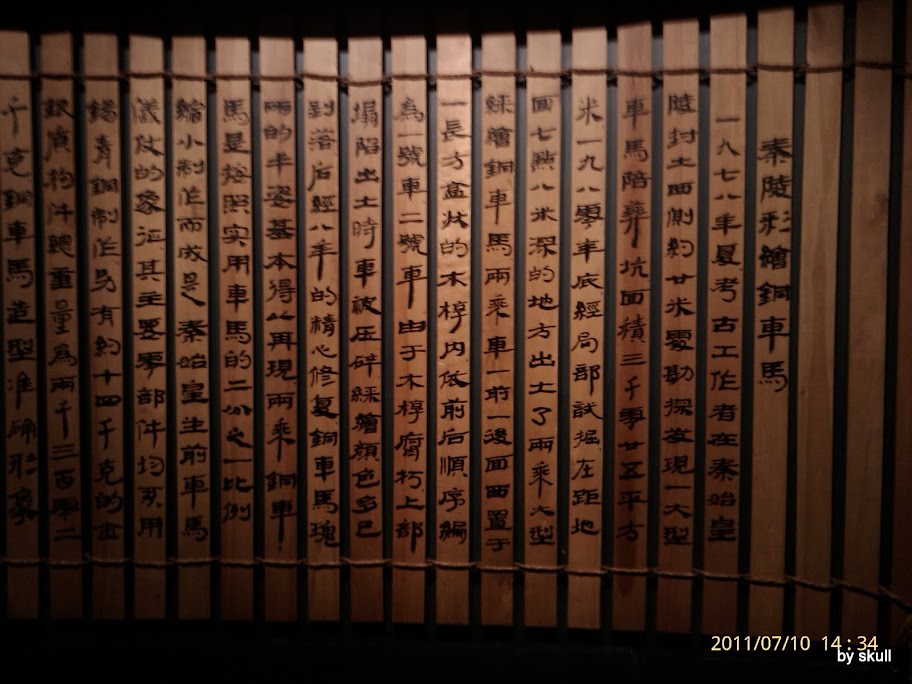 秦陵彩繪銅車馬
一九七八年夏考古工作者在秦始皇
陵封土西側約廿米處勘探发現一大型
車馬陪葬坑面積三千零廿五平方
米一九八零年底經局部試掘在距地
面七點八米深的地方出土了兩乘大型
綵繪銅車馬兩乘車一前一後面西置于
一長方盒狀的木椁内依前后順序編
為一號車二號車由于木椁腐朽上部
塌陷出土時車被压碎綵繪顏色多已
剥落后經八年的精心修复銅車馬瑰
丽的丰姿基本得以再現兩乘銅車
馬是按照实用車馬的二分之一比例
縮小制作而成是秦始皇生前車馬
儀仗的象征其主要零部件均系用
錫青銅制作另有約十四千克的金
銀构件總重量為兩千三百零二
千克銅車馬造型准确形象
2011/07/10 14:34
by skull